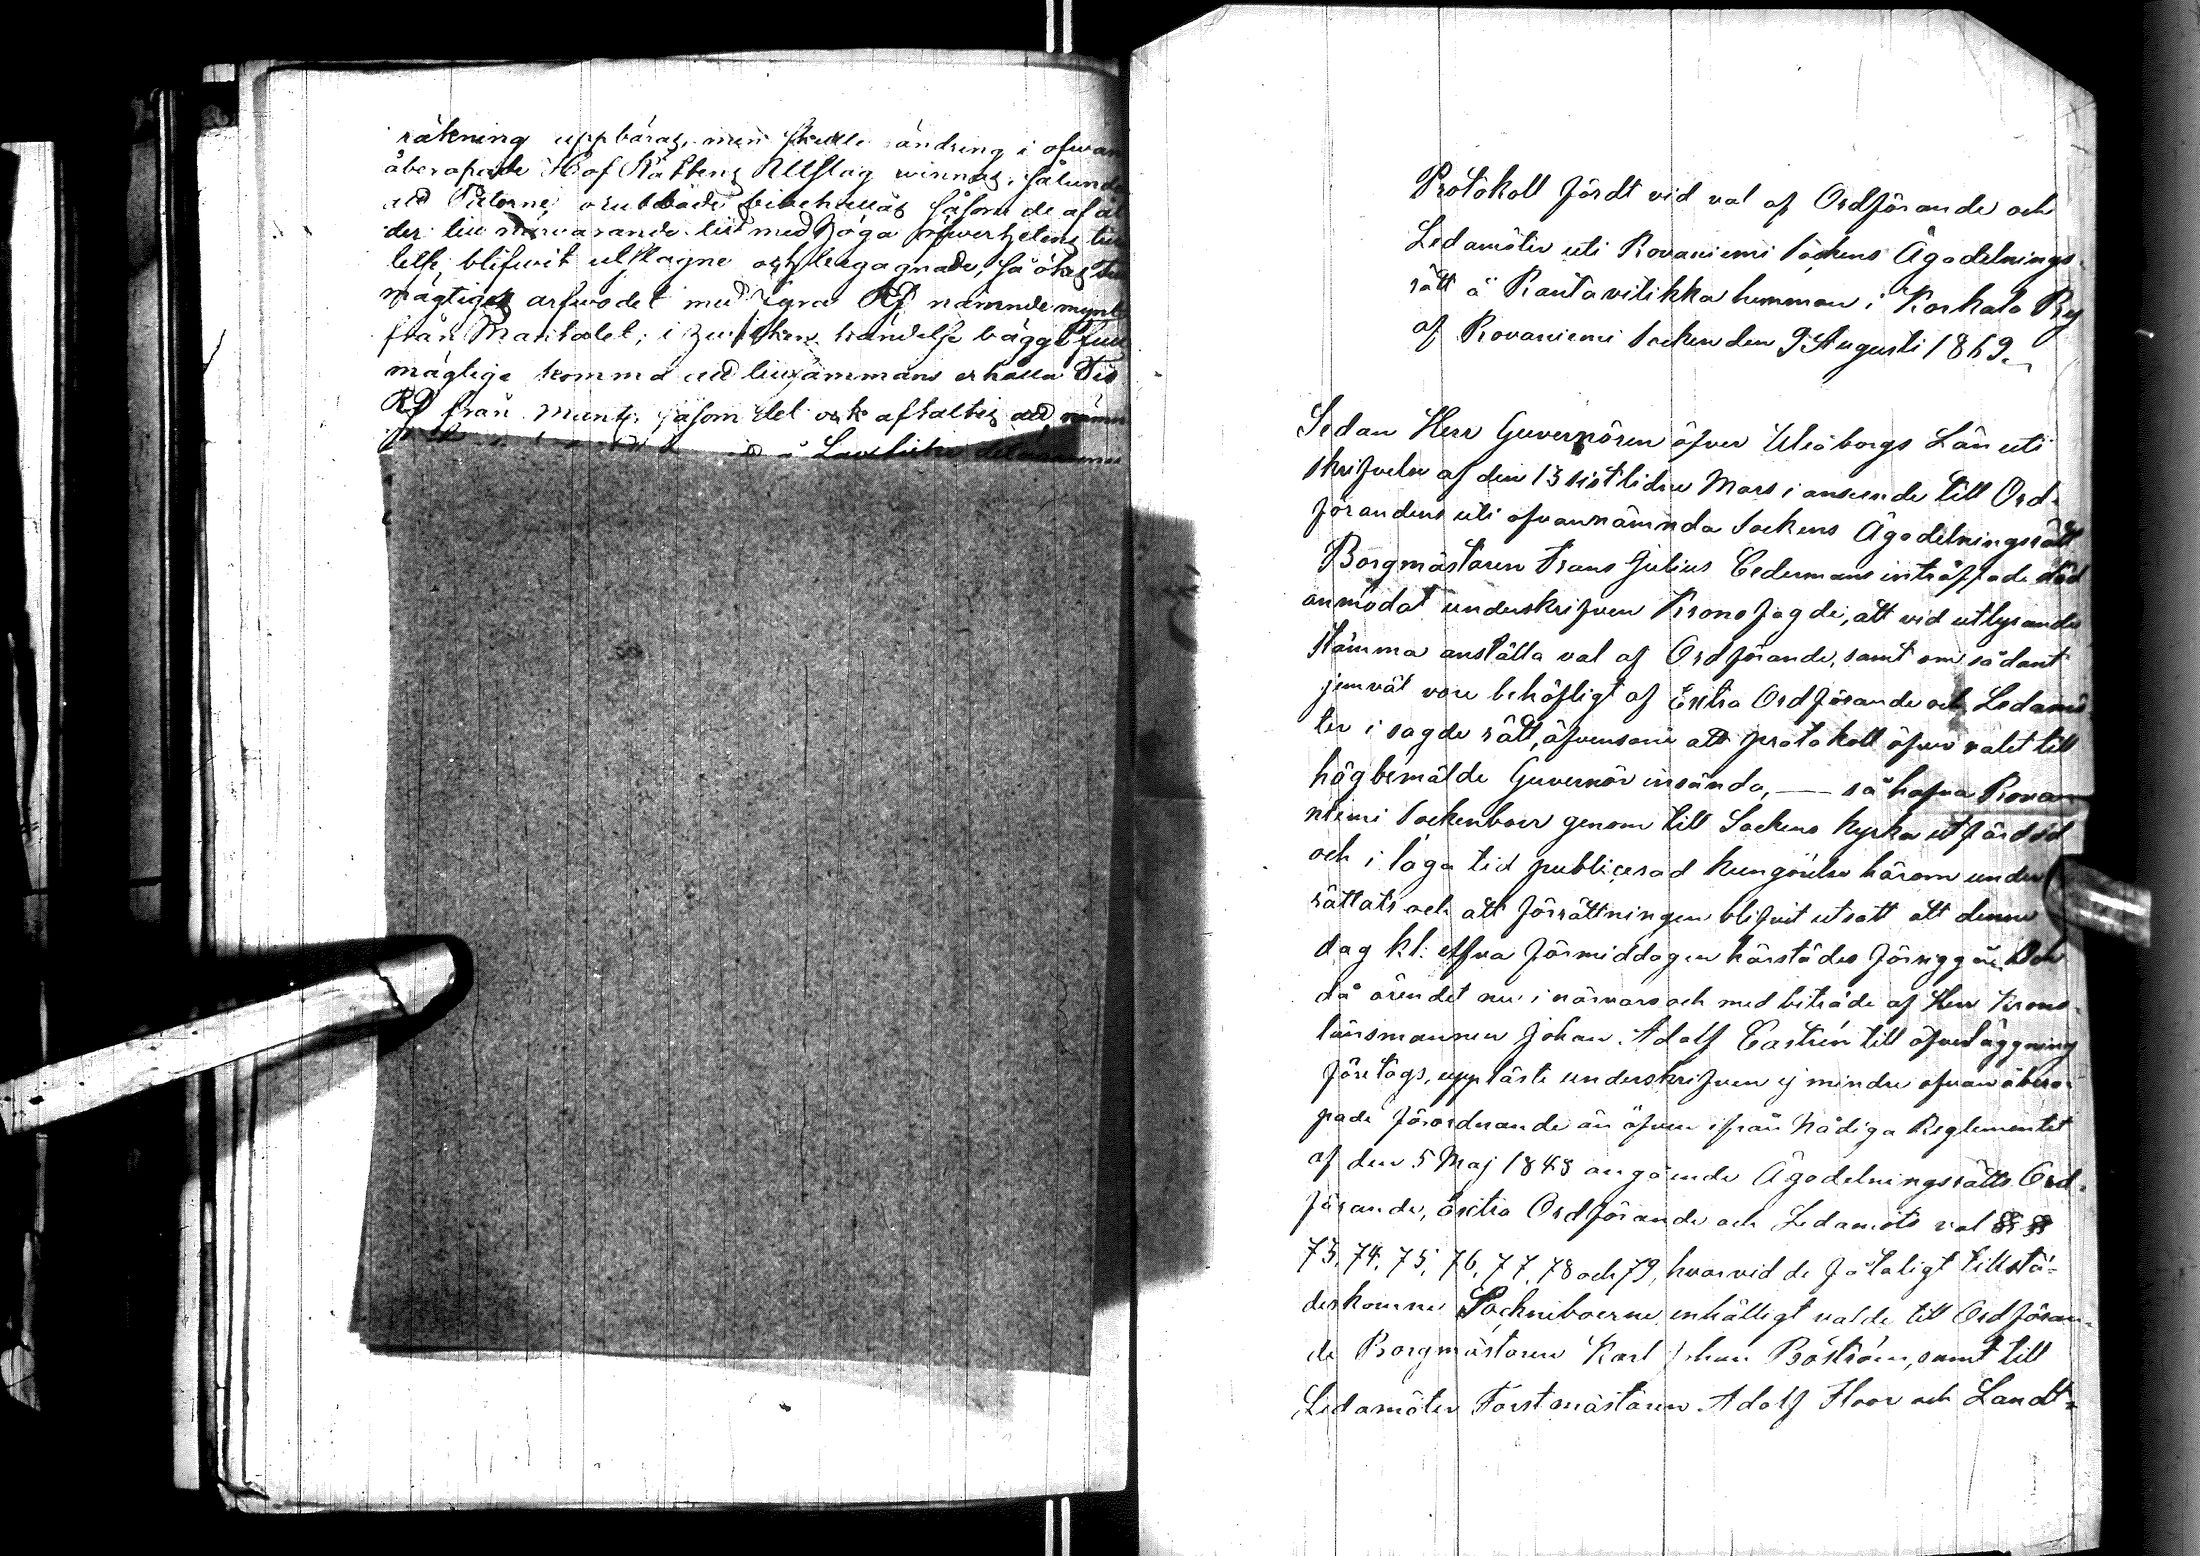 räkning uppbäras, men skulle ändring i ofwan
åberopade Hof Rättens Utslag winnas, sålunda
att orubbade bibehållas såsom de af ål
der till närwarande tid med höga öfwerhetens
blifwit uttagne och
mägtiges arfwodet med fyra Rf nämnde mynt
från i händelse bägge full
mäglige komma att tillsammans erhålla Tio
Rf från såsom det ock aftaltes att
Protokoll fördt vid val af Ordförande och
Ledamöter uti Rovaniemi Sockens Ägodelnings-
rätt å Rantavitikka hemman i Korkalo By
af Rovaniemi Socken den 9 Augusti 1869.
Sedan Herr Guvernören öfver Uleåborgs Län uti
skrifvelse af den 13 sistlidne Mars i anseende till Ord-
förandens uti ofvannämnda Sockens Ägodelningsrätt
Borgmästaren Frans Julius Cedermans inträffade död
anmodat underskrifven Kronofogde, att vid utlysande
stämma anställa val af Ordförande, samt om sådant
jemväl vore behöfligt af Extra Ordförande och Ledamö-
ter i sagde rätt, äfvensom att protokoll öfver valet till
högbemälde Guvernör insända, — så hafva Rova-
niemi Sockenboer genom till Sockens kyrka utfärdad
och i laga tid publicerad kungörelse härom under
rättats och att förrättningen blifvit utsatt att denne
dag kl. elfva förmiddagen härstädes föreggå. Och
då ärendet nu i närvaro och med biträde af Herr Krono-
länsmannen Johan Adolf Castrén till öfverläggning
företogs, uppläste underskrifven ej mindre ofvanåbero-
pade förordnande än äfven ifrån Nådiga Reglementet
af den 5 Maj 1848 angående Ägodelningsrätts Ord-
förande, Extra Ordförande och Ledamots val §§
73, 74, 75, 76, 77, 78 och 79, hvarvid de fåtaligt tillstä-
deskomne Sockneboerne enhälligt valde till Ordföran-
de Borgmästaren Karl Johan Boström, samt till
Ledamöter Forstmästaren Adolf Floor och Landt-